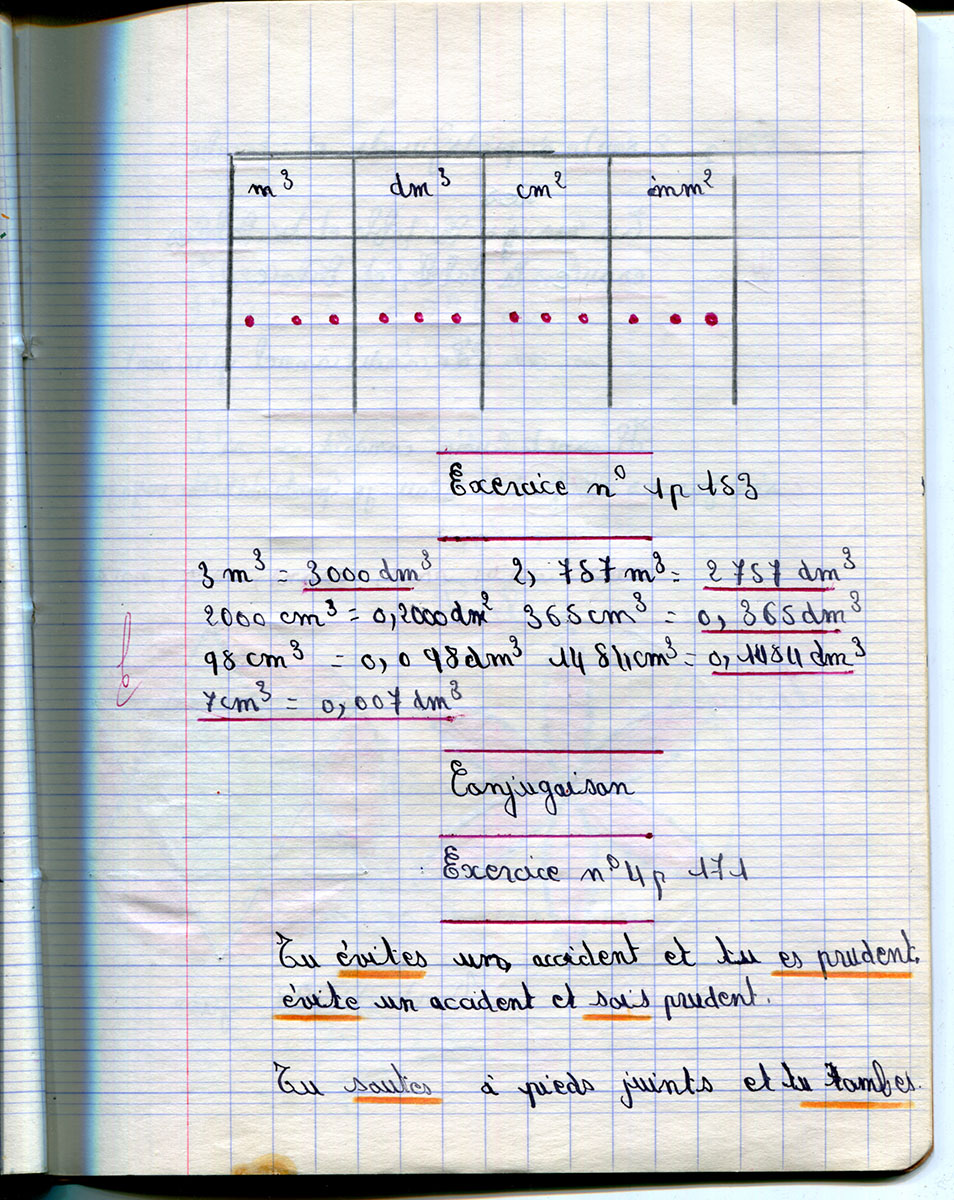 m³ dm³ cm² mm²
Exercice n° 1 p 153
3 m³ = 3000 dm³ 2, 757 m³ = 2 757 dm³
2000 cm³ = 0,2000 dm² 365 cm³ = 0, 365 dm³
98 cm³ = 0, 098 dm³ 1484 cm³ = 0, 1484 dm³
7 cm³ = 0, 007 dm³
Conjugaison
Exercice n° 4 p 171
Tu évites un accident et tu es prudent.
évite un accident et sois prudent.
Tu sautes à pieds juints et tu tombes.